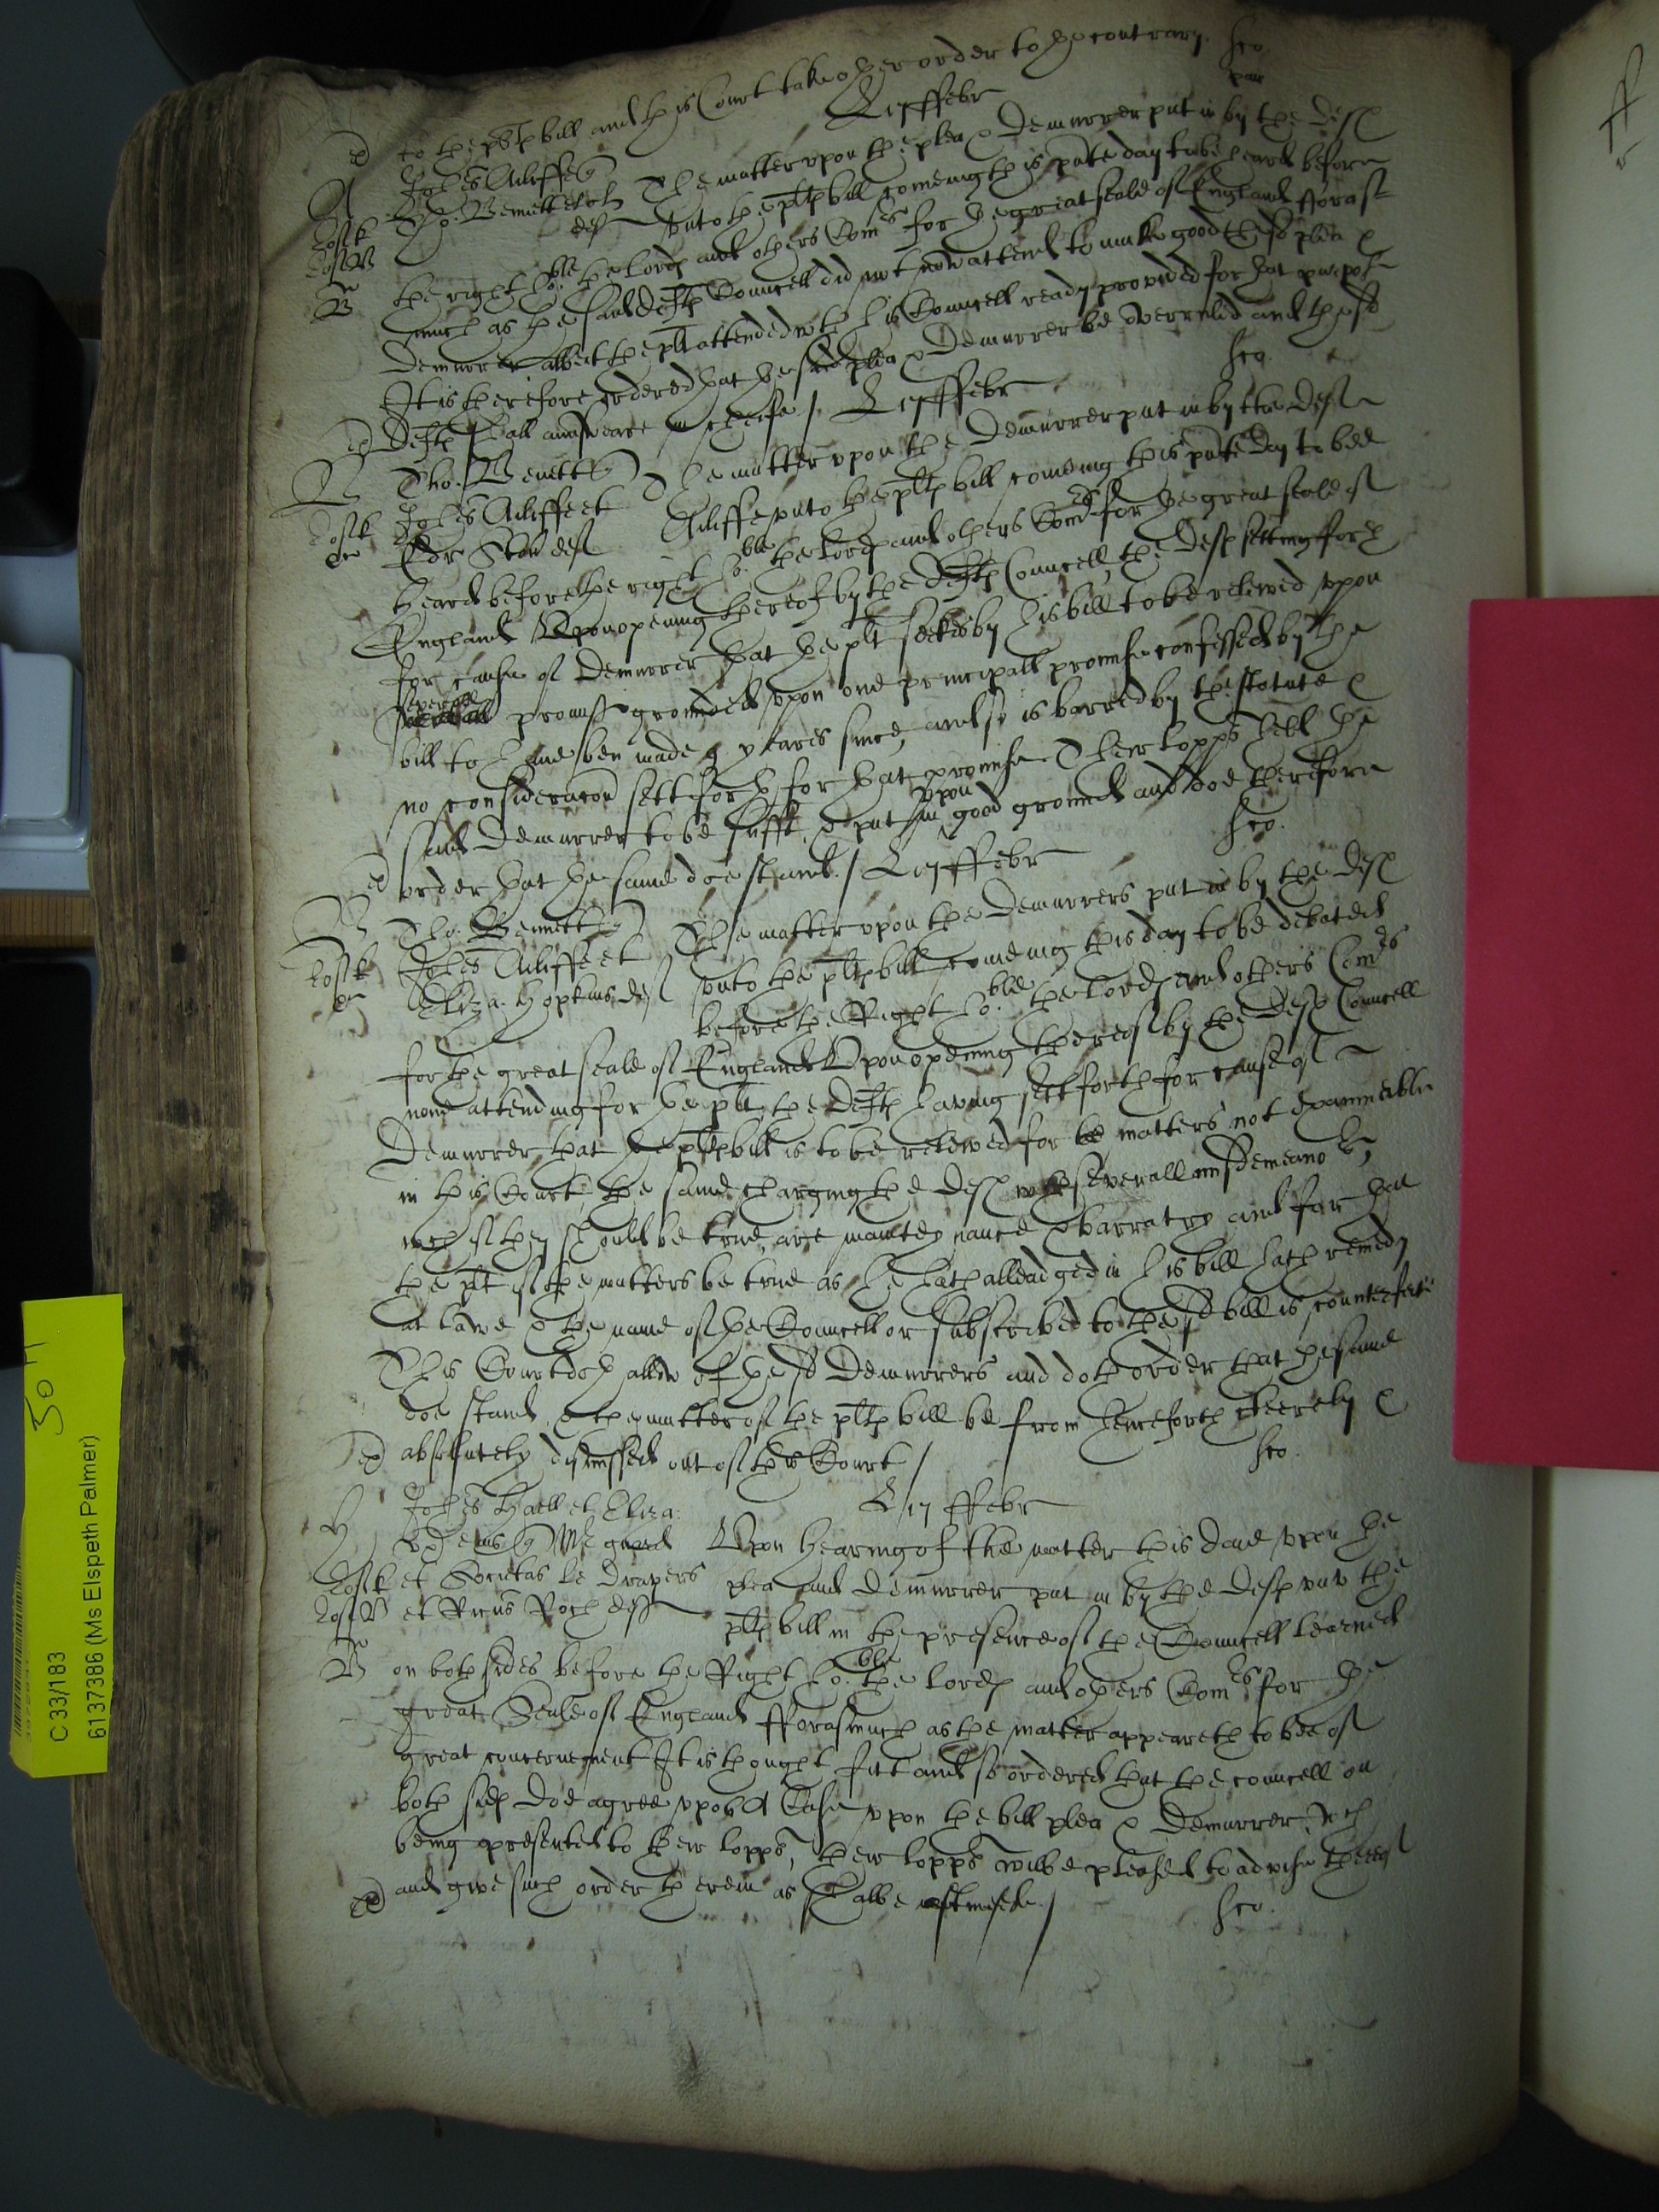 to the plts bill and this Court take other order to the contrary. Sco
ex
A Johes Ailiffe qr
Tho: Bennett et al
def
L 17 ffebr
The matter upon the plea & demurrer put in by the deft
unto the plts bill comeing this pnte day to be heard before
the right ho:ble the lords and others Comrs for the great seale of England fforas
much as the said defts Councell did not now attend to make good the sd plea &
demurrer albeit the plt attended wth his Councell ready provided for that purpose
It is therefore ordered that the said plea & demurrer be overruled and the sd
ex defts shall answeare in cheife / L 17 ffebr
Sco.
B Tho. Benett qr
Johes Ailiffe et
Edr def
The matter upon the Demurrer put in by the deft
Ailiffe unto the plts bill comeing this pnte day to bee
heard before the right ho:ble the lords and others Comrs for the great seale of
England Upon opening thereof by the defts Councell, the deft setting forth
for cause of demurrer that the plt seekes by his bill to be releived upon
severall promises grounded upon one principall promise confessed by the
bill to have ben made 9 yeares since, and so is barred by the statute &
no consideracon sett forth for that promise Their lopps held the
said demurrer to be suff[t], & put in upon good ground and doe therefore
ex order that the same doe stand. / L 17 ffebr
Sco.
B Tho: Bennett qr
Johes Ailiffe et
Eliza. Hopkins def
The matter upon the demurrers put in by the deft
unto the plts bill comeing this day to be debated
before the Right ho:ble the lords and others Comrs
for the great seale of England Upon opening thereof by the defts Councell
none attending for the plt, the defts having sett forth for cause of
Demurrer that the plts bill is to be releived for be matters not examinable
in this Court, the same charging the defts wth severall misdemeanors,
wch if they should be true, are maintenance & barratry and for that
the plt if the matters be true as he hath alleadged in his bill hath remedy
at lawe & the name of the Councellor subscribed to the sd bill is counterfeite
This Court doth allow of the sd Demurrers and doth order that the same
doe stand & the matter of the plts bill be from henceforth cleerely &
ex absolutely dismissed out of this Court /
Sco.
H Johes Hall et Eliza
ux eius qr Mr guard
et Societas le Drapers
et def
L 17 ffebr
Upon hearing of the matter this daie upon the
plea and demurrer put in by the defts unto the
plts bill in the presence of the Councell learned
on both sides before the Right ho:ble the lords and others Comrs for the
great Seale of England fforasmuch as the matter appeareth to bee of
great concernement It is thought fitt and so ordered that the councell on
both sides doe agree upon A Case upon the bill plea & demurrer, wch
being presented to their lopps, their lopps wilbe pleased to advise thereof
ex and give such order therein as shalbe /
Sco.
C 33/183
6137386 (Ms Elspeth Palmer)